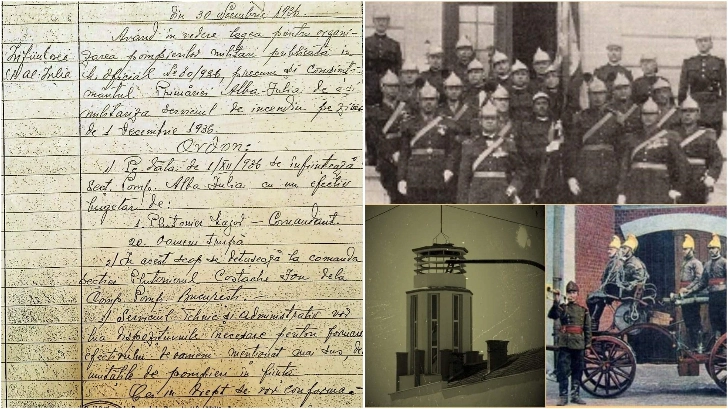 din 30 Decembrie 1936.
Având în vedere legea pentru organi-
Înființarea
zarea pompierilor militari publicată în
S. Al. Iulia
M. Oficial No. 80/936, precum și consimță-
mântul Primăriei Alba-Iulia de a-și
militariza serviciul de incendiu pe ziua
de 1 Decembrie 1936.
Ordon:
1) Pe data de 1/XII/936 se înființează
Sect. Pomp. Alba Iulia cu un efectiv
bugetar de:
1. Plutonier Major – Comandant.
20. Oameni trupă
2) În acest scop se detașează la comanda
secției Plutonierul Costache Ion dela
Comp. Pomp. București.
3) Serviciul Tehnic și Administrativ vor
lua dispozițiunile necesare pentru formarea
efectivului de oameni menționat mai sus, de
unitățile de pompieri în ființă
Cei în drept se vor conforma.-